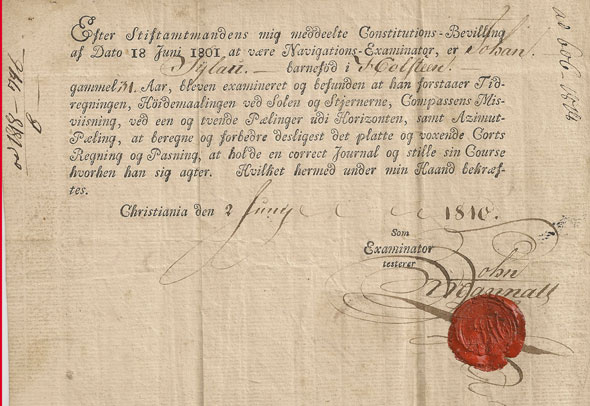 Efter Stiftamtmandens mig meddeelte Constitutions-Bevilling
af Dato 18 Juni 1801 at være Navigations-Examinator, er Johan
Sylau. barneföd i Holsteen
gammel 31 Aar, bleven examineret og befunden at han forstaaer Tid-
regningen, Höidemaalingen ved Solen og Stjernerne, Compassens Mis-
viisning, ved een og tvende Pælinger udi Horizonten, samt Azimut-
Pæling, at beregne og forbedre desligest det platte og voxende Corts
Regning og Pasning, at holde en correct Journal og stille sin Course
hvorhen han sig agter. Hvilket hermed under min Haand bekræf-
tes.
Christiania den 2 Juny 1810.
Som
Examinator
testerer
John